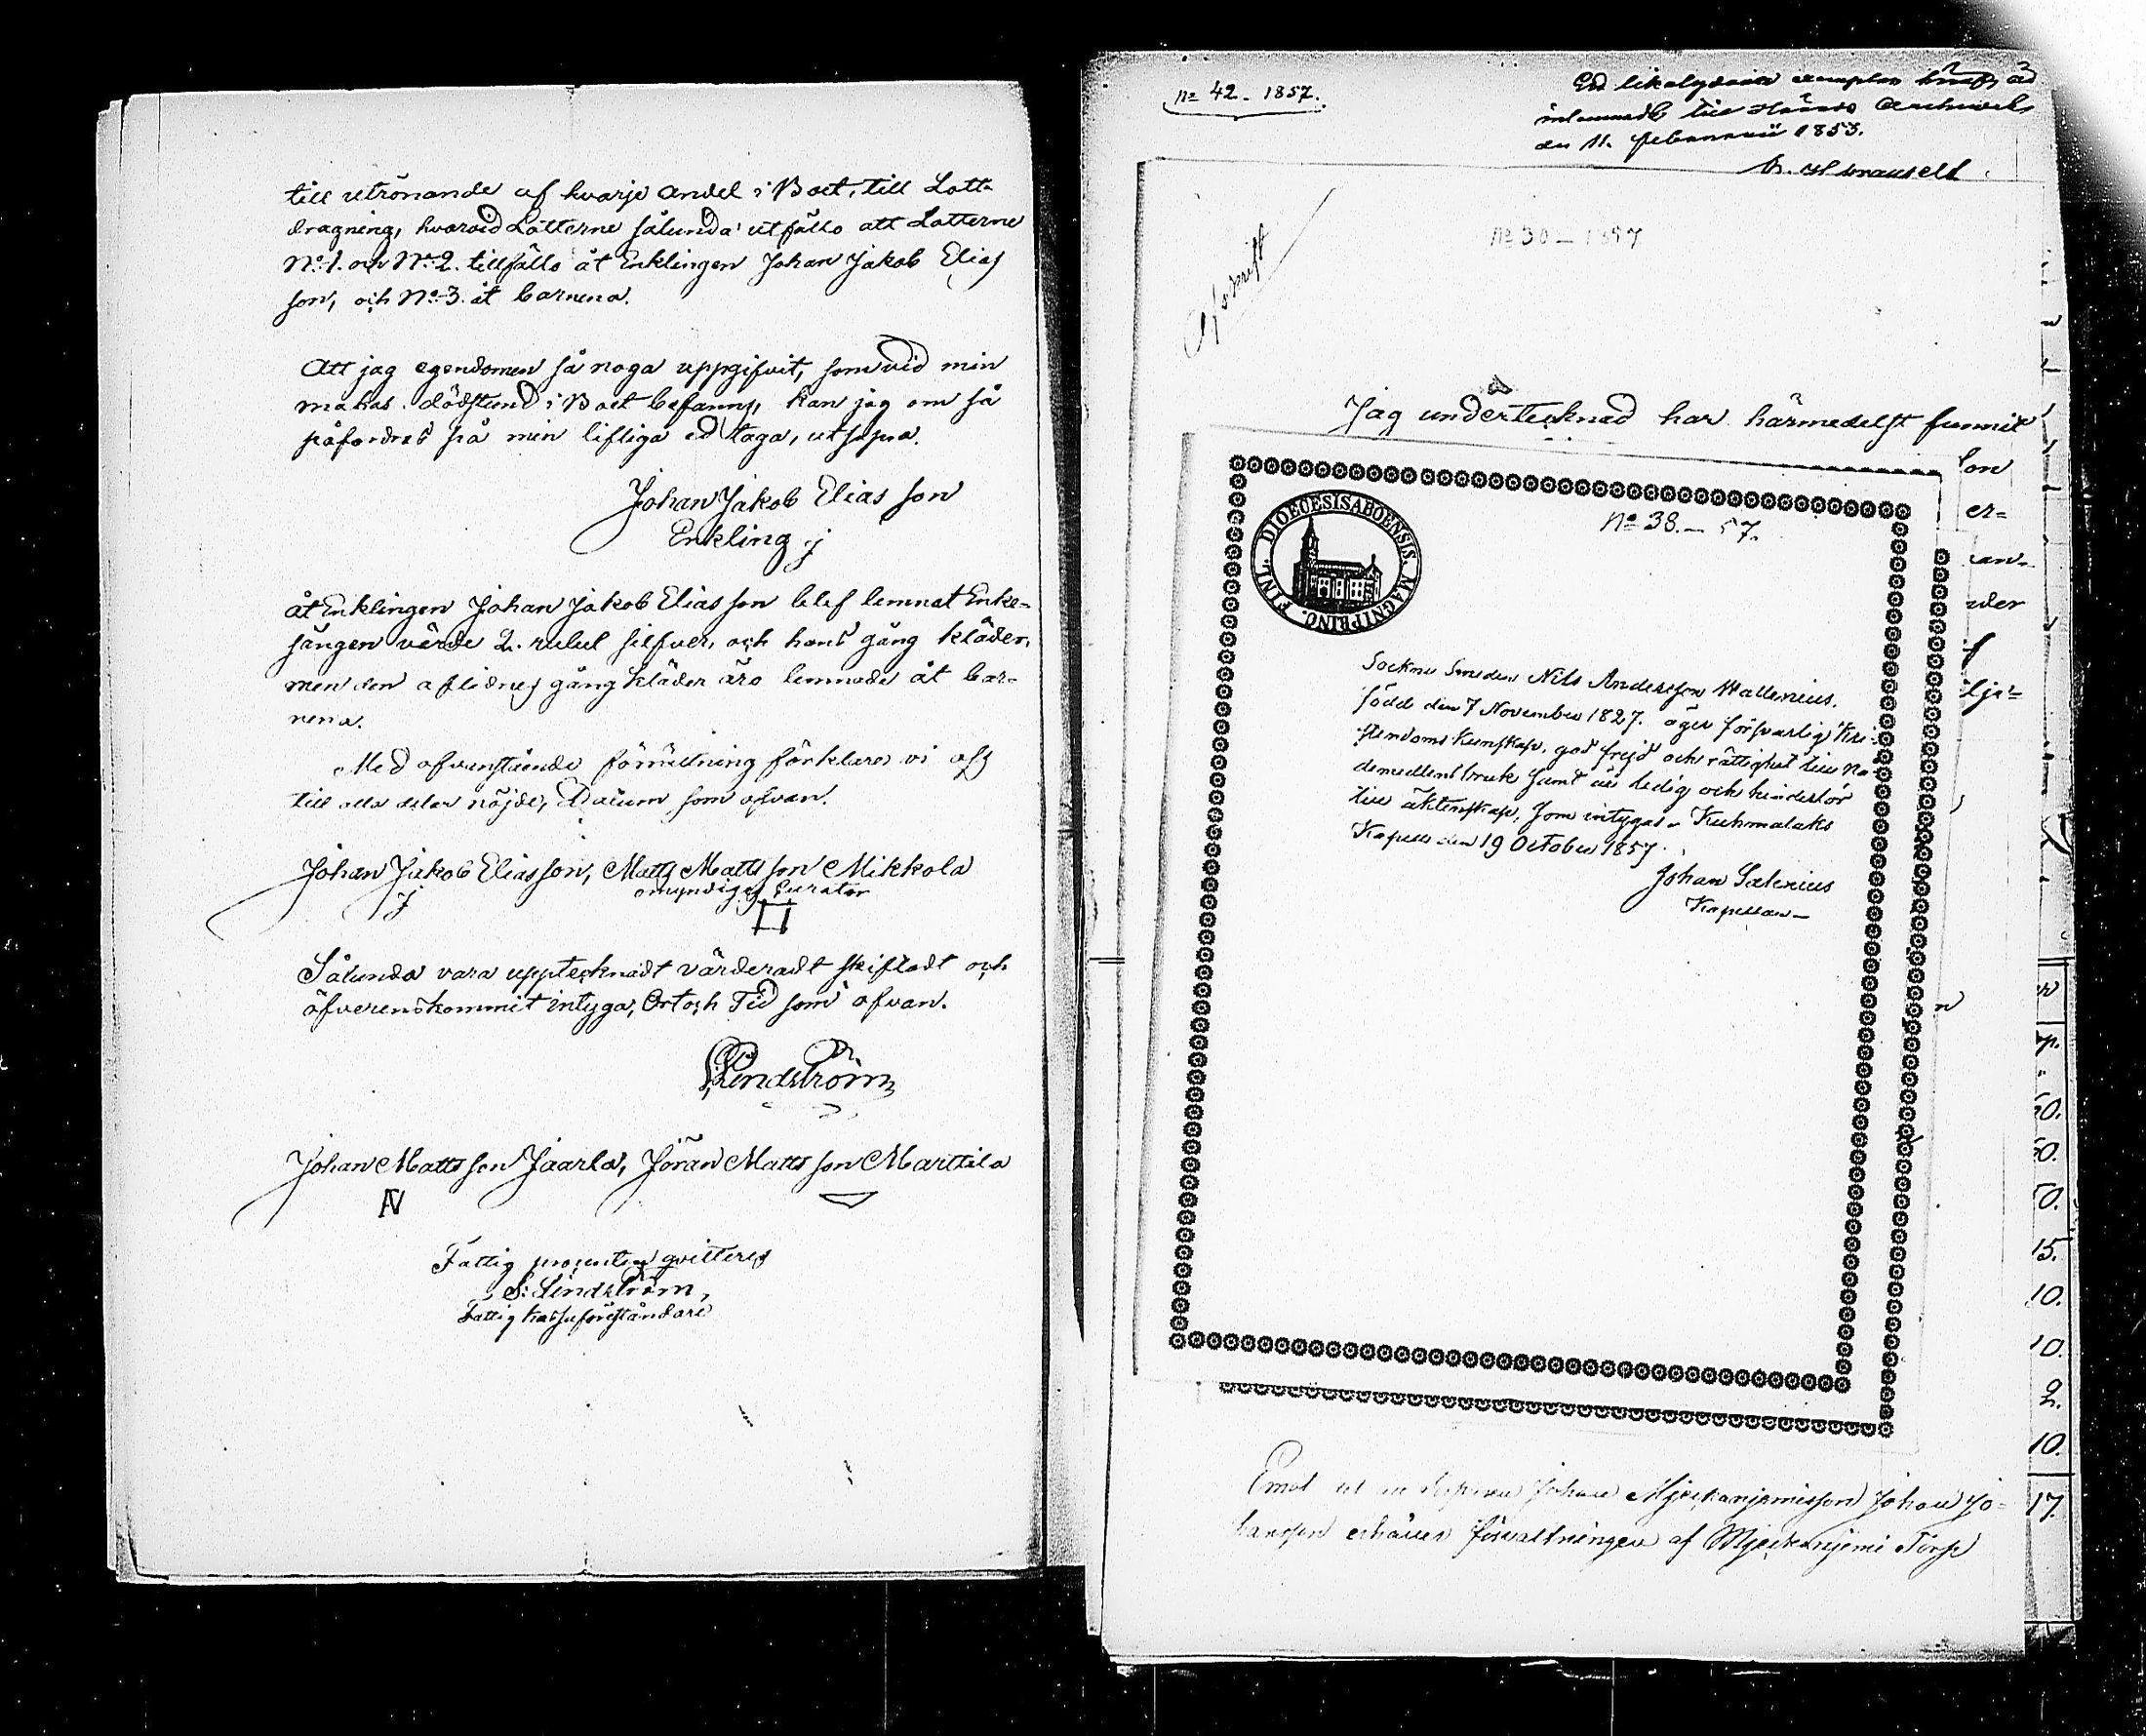 till utrönande af hvarje andel i Boet, till Lott-
dragning, hvarvid Lotterne sålunda utföllo att Lotterne
No 1. och No 2. tillfällo åt Enklingen Johan Jakob Elias
son, och No 3. åt barnena.
Att jag egendomen så noga uppgifvit, som vid min
makas dödstund i Boet befanns, kan jag om så
påfordras på min lifliga ed taga, utsägna.
Johan Jakob Elias son
Enkling
åt Enklingen Johan Jakob Elias son blef lemnat Enke-
sängen värde 2. rubel silfver, och hans gång kläder,
men den aflidnes gång kläder äro lemnade åt bar-
nena.
Med ofvanstående förrättning förklara vi oss
till alla delar nöjde, Datum som ofvan.
Johan Jakob Eliasson, Matts Matts son Mikkola
omyndiges Curator
Sålunda vara upptecknadt värderadt skiftadt och
öfverenskommit intyga, Ort och Tid som ofvan.
Lindström
Johan Matts son Jaarla, Jöran Matts son Marttila
Fattig procenten qvitteras
S: Lindström,
Fattig kassuförståndare
No 42 - 1857.
Ett likalydande exemplar
inlemnadt till Härads Archivet
den 11. Februarii 1853.
Afskrift
No 30 - 1857
Jag undertecknad har härmedelst funnit
DIOECESIS ABOENSIS. MAGNI PRINC. FINL.
No 38. - 57.
Sockne Smeden Nils Andersson Wallenius,
född den 7 November 1827. äger försvarlig Kri-
stendoms kunskap, god frejd och rättighet till Na-
demedlens bruk samt är ledig och hinderlös
till äktenskap, som intygas. Kuhmalaks
Kapell den 19 October 1857.
Johan Salenius
Kapellan
Johan Johan Jo-
hansson erhåller förvaltningen af Torp